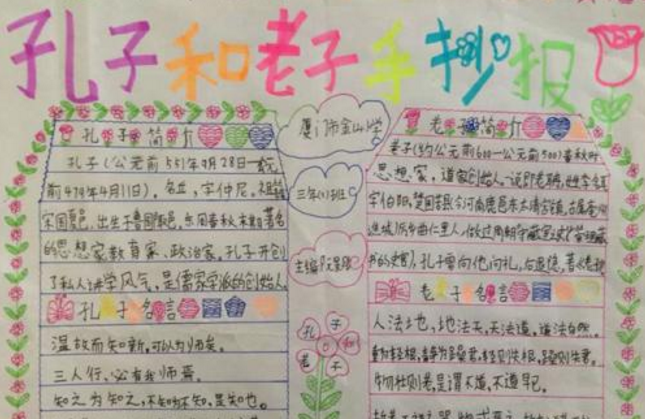 孔子和老子手抄报
孔子简介
孔子(公元前551年9月28日—公元
前479年4月11日)，名丘，字仲尼。祖籍
宋国夏邑，出生于鲁国陬邑，东周春秋末期著名
的思想家教育家、政治家。孔子开创
了私人讲学风气，是儒家学派的创始人。
孔子名言
温故而知新，可以为师矣。
三人行，必有我师焉。
知之为知之，不知为不知，是知也。
厦门市金山小学
三年(1)班
主编
孔子
和
老子
老子简介
老子(约公元前600—公元前500)春秋时
思想家，道家创始人。一说即老聃，姓李名耳
字伯阳，楚国苦县今河南鹿邑东太清宫镇
厉乡曲仁里人，做过周朝守藏室之史
孔子曾向他问礼，后退隐，著
老子名言
人法地，地法天，天法道，道法自然。
重为轻根，静为躁君，轻则失根，躁则失君。
物壮则老，是谓不道，不道早已。